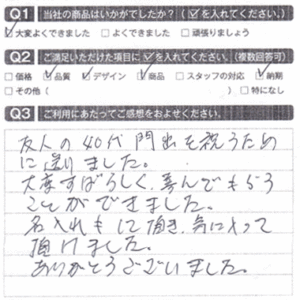 Q1 当社の商品はいかがでしたか？（☑を入れてください。）
☑大変よくできました □よくできました □頑張りましょう
Q2 ご満足いただけた項目に☑を入れてください。（複数回答可）
□価格 ☑品質 ☑デザイン ☑商品 □スタッフの対応 ☑納期
□その他（ ）□特になし
Q3 ご利用にあたってご感想をおよせください。
友人の40代門出を祝うため
に送りました。
大変すばらしく、喜んでもらう
ことができました。
名入れもして頂き、気に入って
頂けました。
ありがとうございました。